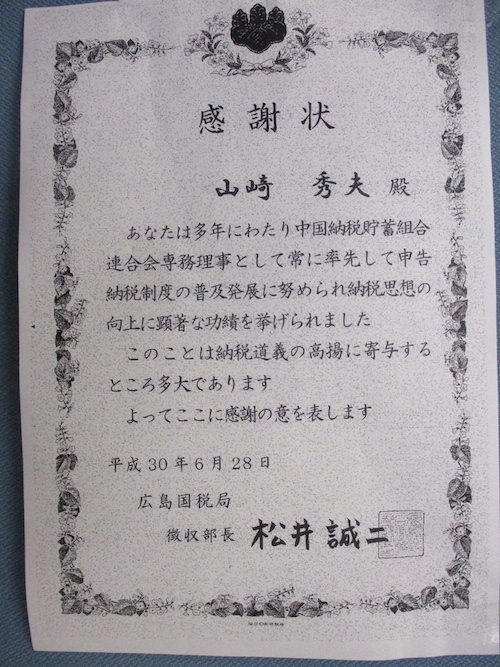 感謝状
山崎 秀夫 殿
あなたは多年にわたり中国納税貯蓄組合
連合会専務理事として常に率先して申告
納税制度の普及発展に努められ納税思想の
向上に顕著な功績を挙げられました
このことは納税道義の高揚に寄与する
ところ多大であります
よってここに感謝の意を表します
平成30年6月28日
広島国税局
徴収部長 松井誠二